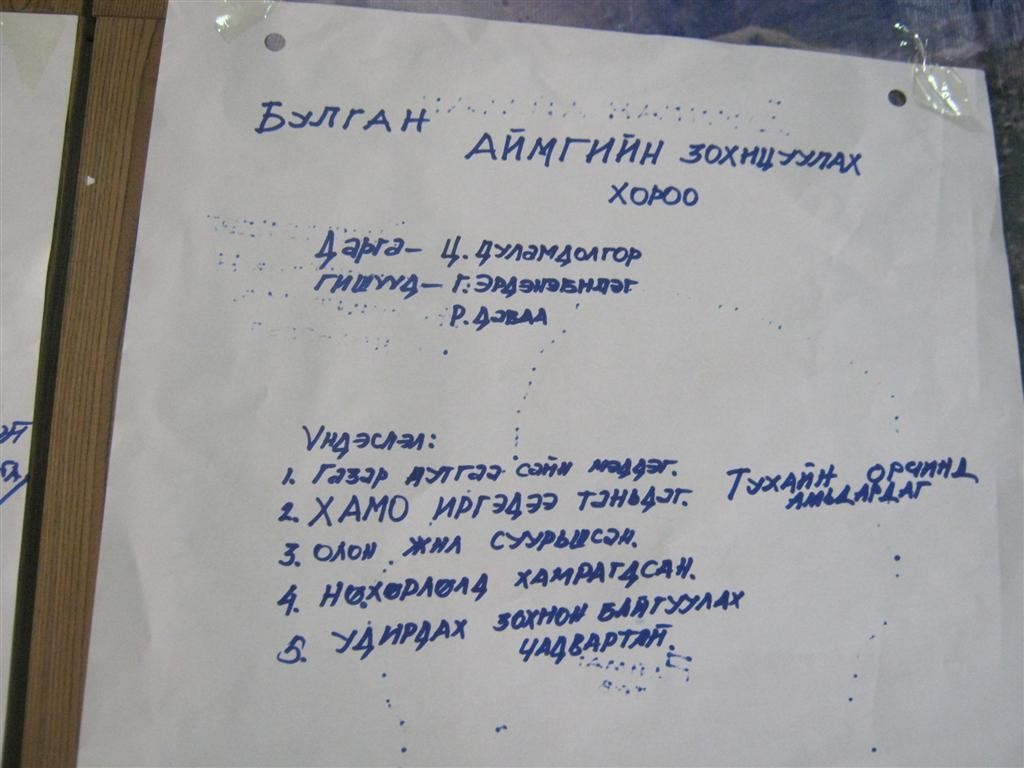 БУЛГАН
АЙМГИЙН ЗОХИЦУУЛАХ
ХОРОО
Дарга- Ц. ДУЛАМДОЛГОР
ГИШҮҮД- Г. ЭРДЭНЭБИЛЭГ
Р. ДАВАА
Үндэслэл:
1. Газар дутгаа сайн мэддэг.
2. ХАМО ИРГЭДЭЭ таньдаг. ТУХАЙН ОРЧИНД
АМЬДАРДАГ
3. ОЛОН ЖИЛ СУУРЬШСАН.
4. НӨХӨРЛӨЛД ХАМРАГДСАН.
5. УДИРДАХ ЗОХИОН БАЙГУУЛАХ
ЧАДВАРТАЙ.